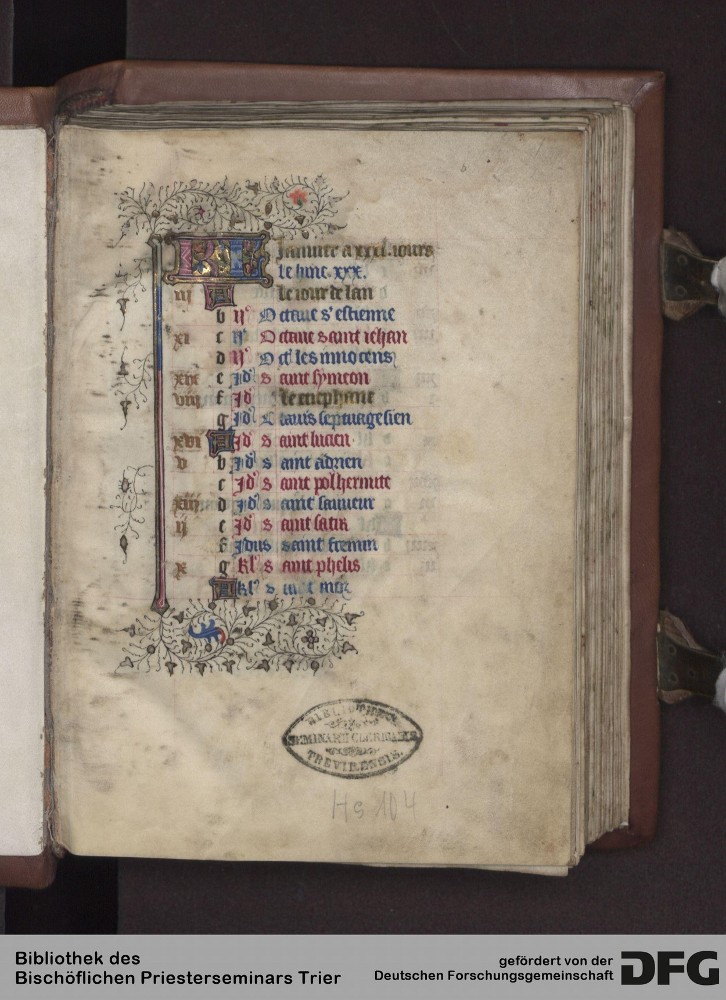 KL Januier a xxxi. iours
Le lune. xxx.
iij A Le iour de lan
b iiij° Octaue s' estienne
xi c iij° Octaue saint iehan
d ij° Oct' les innocens
xix e s aint symeon
viij f Le
g jd' Clauis septuagesien
xvi A jd' s aint lucien
v b jd' s aint adrien
c jd' s aint pol hermite
xiij d jd' s aint sauueur
ij e jd' s aint satir
f jdus saint fremin
x g kl' s aint phelis
A kl' s aint
BIBLIOTHEC.
SEMINARII CLERICALIS
TREVIRENSIS.
Hs 104
Bibliothek des
Bischöflichen Priesterseminars Trier
gefördert von der
Deutschen Forschungsgemeinschaft DFG